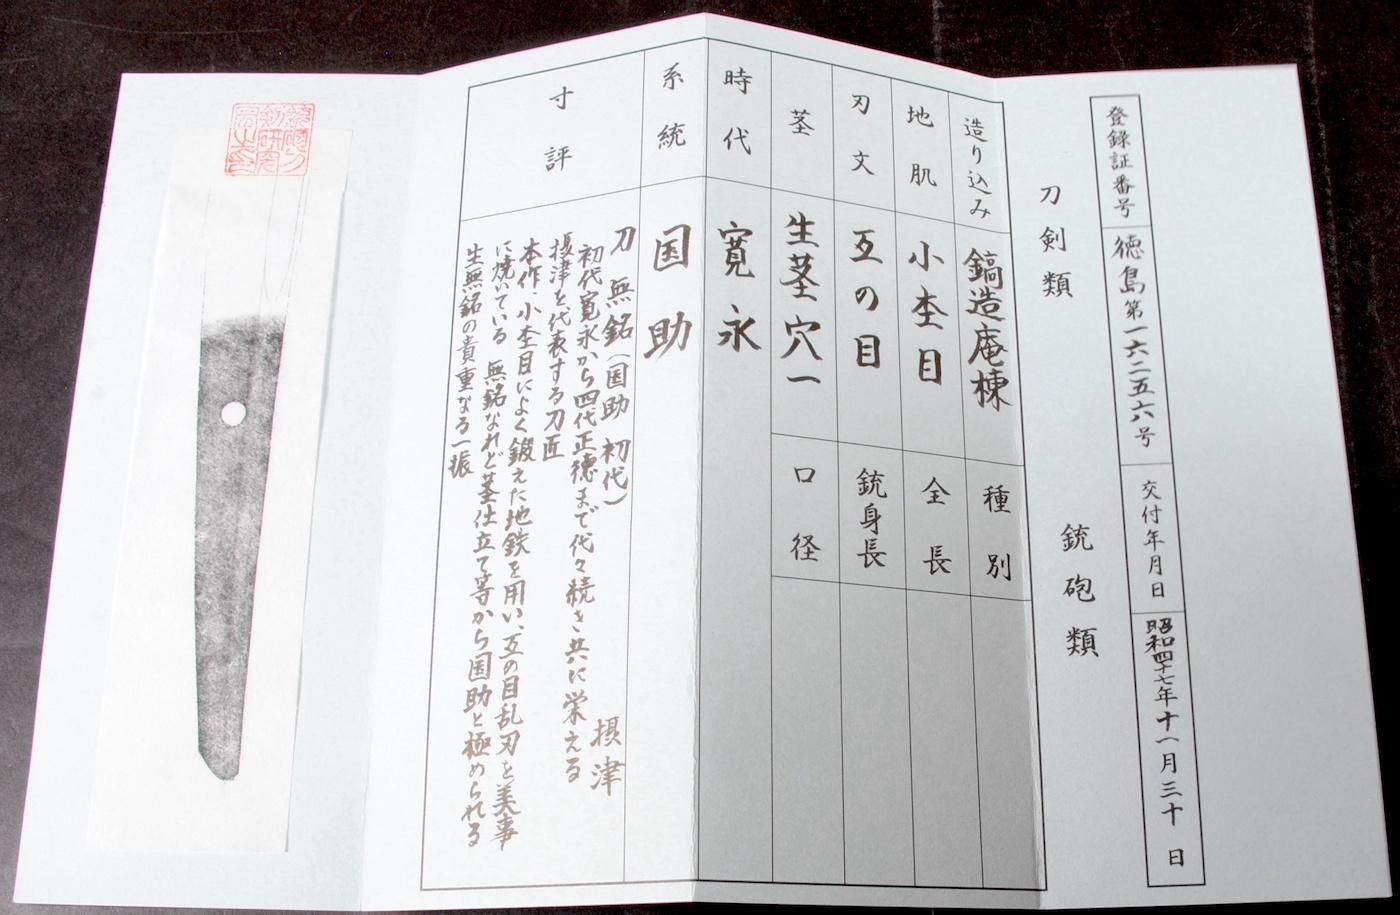 登録証番号 徳島第一六二五六号 交付年月日 昭和四十七年十一月三十日
刀剣類 銃砲類
造り込み 鎬造庵棟 種別
地肌 小杢目 全長
刃文 互の目 銃身長
茎 生茎穴一 口径
時代 寛永
系統 国助
寸評
刀 無銘(国助 初代) 摂津
初代寛永から四代正徳まで代々続き共に栄える
摂津を代表する刀匠
本作、小杢目によく鍛えた地鉄を用い、互の目乱刃を美事
に焼いている 無銘なれど茎仕立て等から国助と極められる
生無銘の貴重なる一振